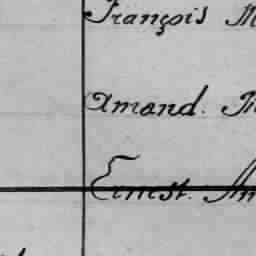 François M
Amand. M
Ernest. An